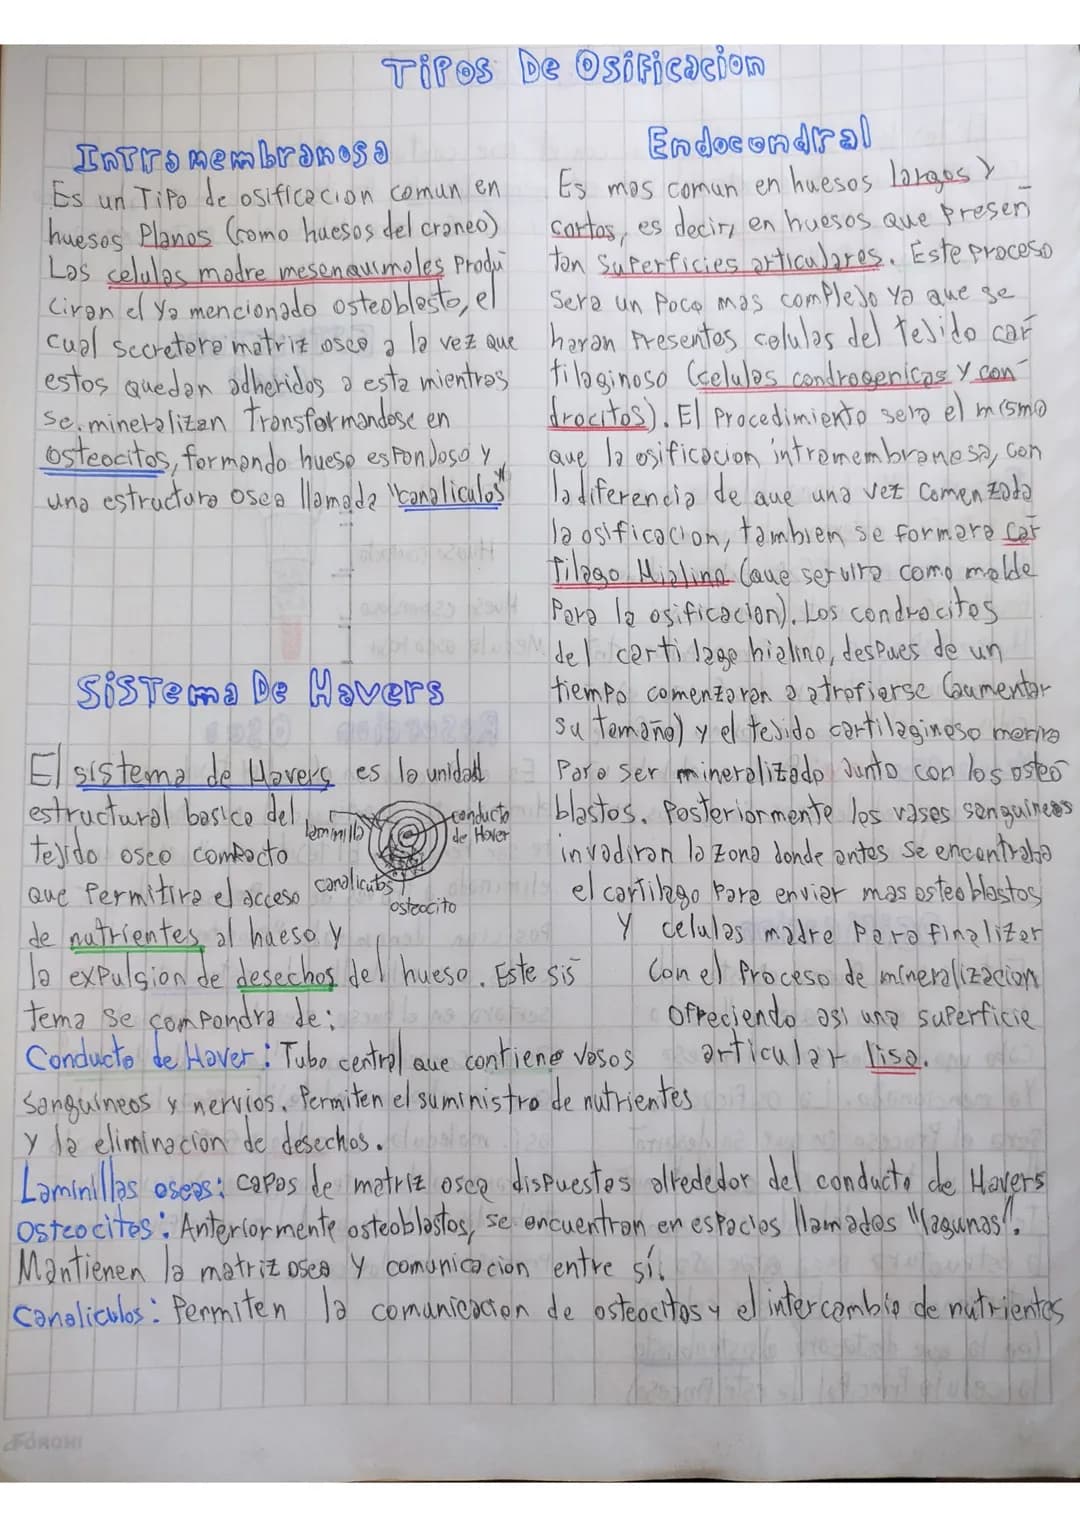 Tipos De Osificacion
Intramembranosa
Es un Tipo de osificacion comun en
huesos Planos (como huesos del craneo)
Las celulas madre mesenquimales Produ
ciran el ya mencionado osteoblasto, el
cual secretara matriz osea a la vez que
estos quedan adheridos a esta mientras
se mineralizan Transformandose en
osteocitos, formando hueso esponjoso y
una estructura osea llamada "canaliculos"
Endocondral
Es mas comun en huesos largos y
cortos, es decir, en huesos que Presen
tan Superficies articulares. Este proceso
Sera un Poco mas complejo ya que se
haran Presentes celulas del tejido car
tilaginoso (celulas condrogenicas y con
drocitos). El Procedimiento sera el mismo
que la osificacion intramembranosa, con
la diferencia de que una vez comenzada
la osificacion, tambien se formara car
tilago Hialino (que servira como molde
Para la osificacion). Los condrocitos
del cartilago hialino, despues de un
tiempo comenzaran a atrofiarse (aumentar
su tamaño) y el tejido cartilaginoso morira
Para ser mineralizado Junto con los osteo
blastos. Posteriormente los vasos sanguineos
invadiran la zona donde antes se encontraba
el cartilago Para enviar mas osteoblastos
y celulas madre Para finalizar
Con el Proceso de mineralizacion
Ofreciendo asi una superficie
articular lisa.
Sistema De Havers
El sistema de Havers es la unidad
estructural basica del
tejido oseo compacto
que Permitira el acceso
de nutrientes al hueso y
la expulsion de desechos del hueso. Este sis
tema se compondra de:
laminilla
conducto
de Haver
canaliculos
osteocito
Conducto de Haver: Tubo central que contiene vasos
Sanguineos y nervios. Permiten el suministro de nutrientes
y la eliminacion de desechos.
Laminillas oseas: capas de matriz osea dispuestas alrededor del conducto de Havers
Osteocitos: Anteriormente osteoblastos, se encuentran en espacios llamados "lagunas".
Mantienen la matriz osea y comunicacion entre sí.
Canaliculos: Permiten la comunicacion de osteocitos y el intercambio de nutrientes